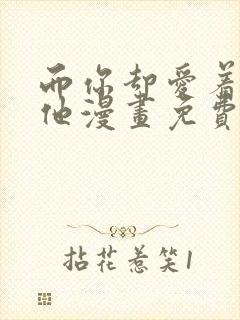 而你却愛着
他漫畫免費
拈花惹笑1